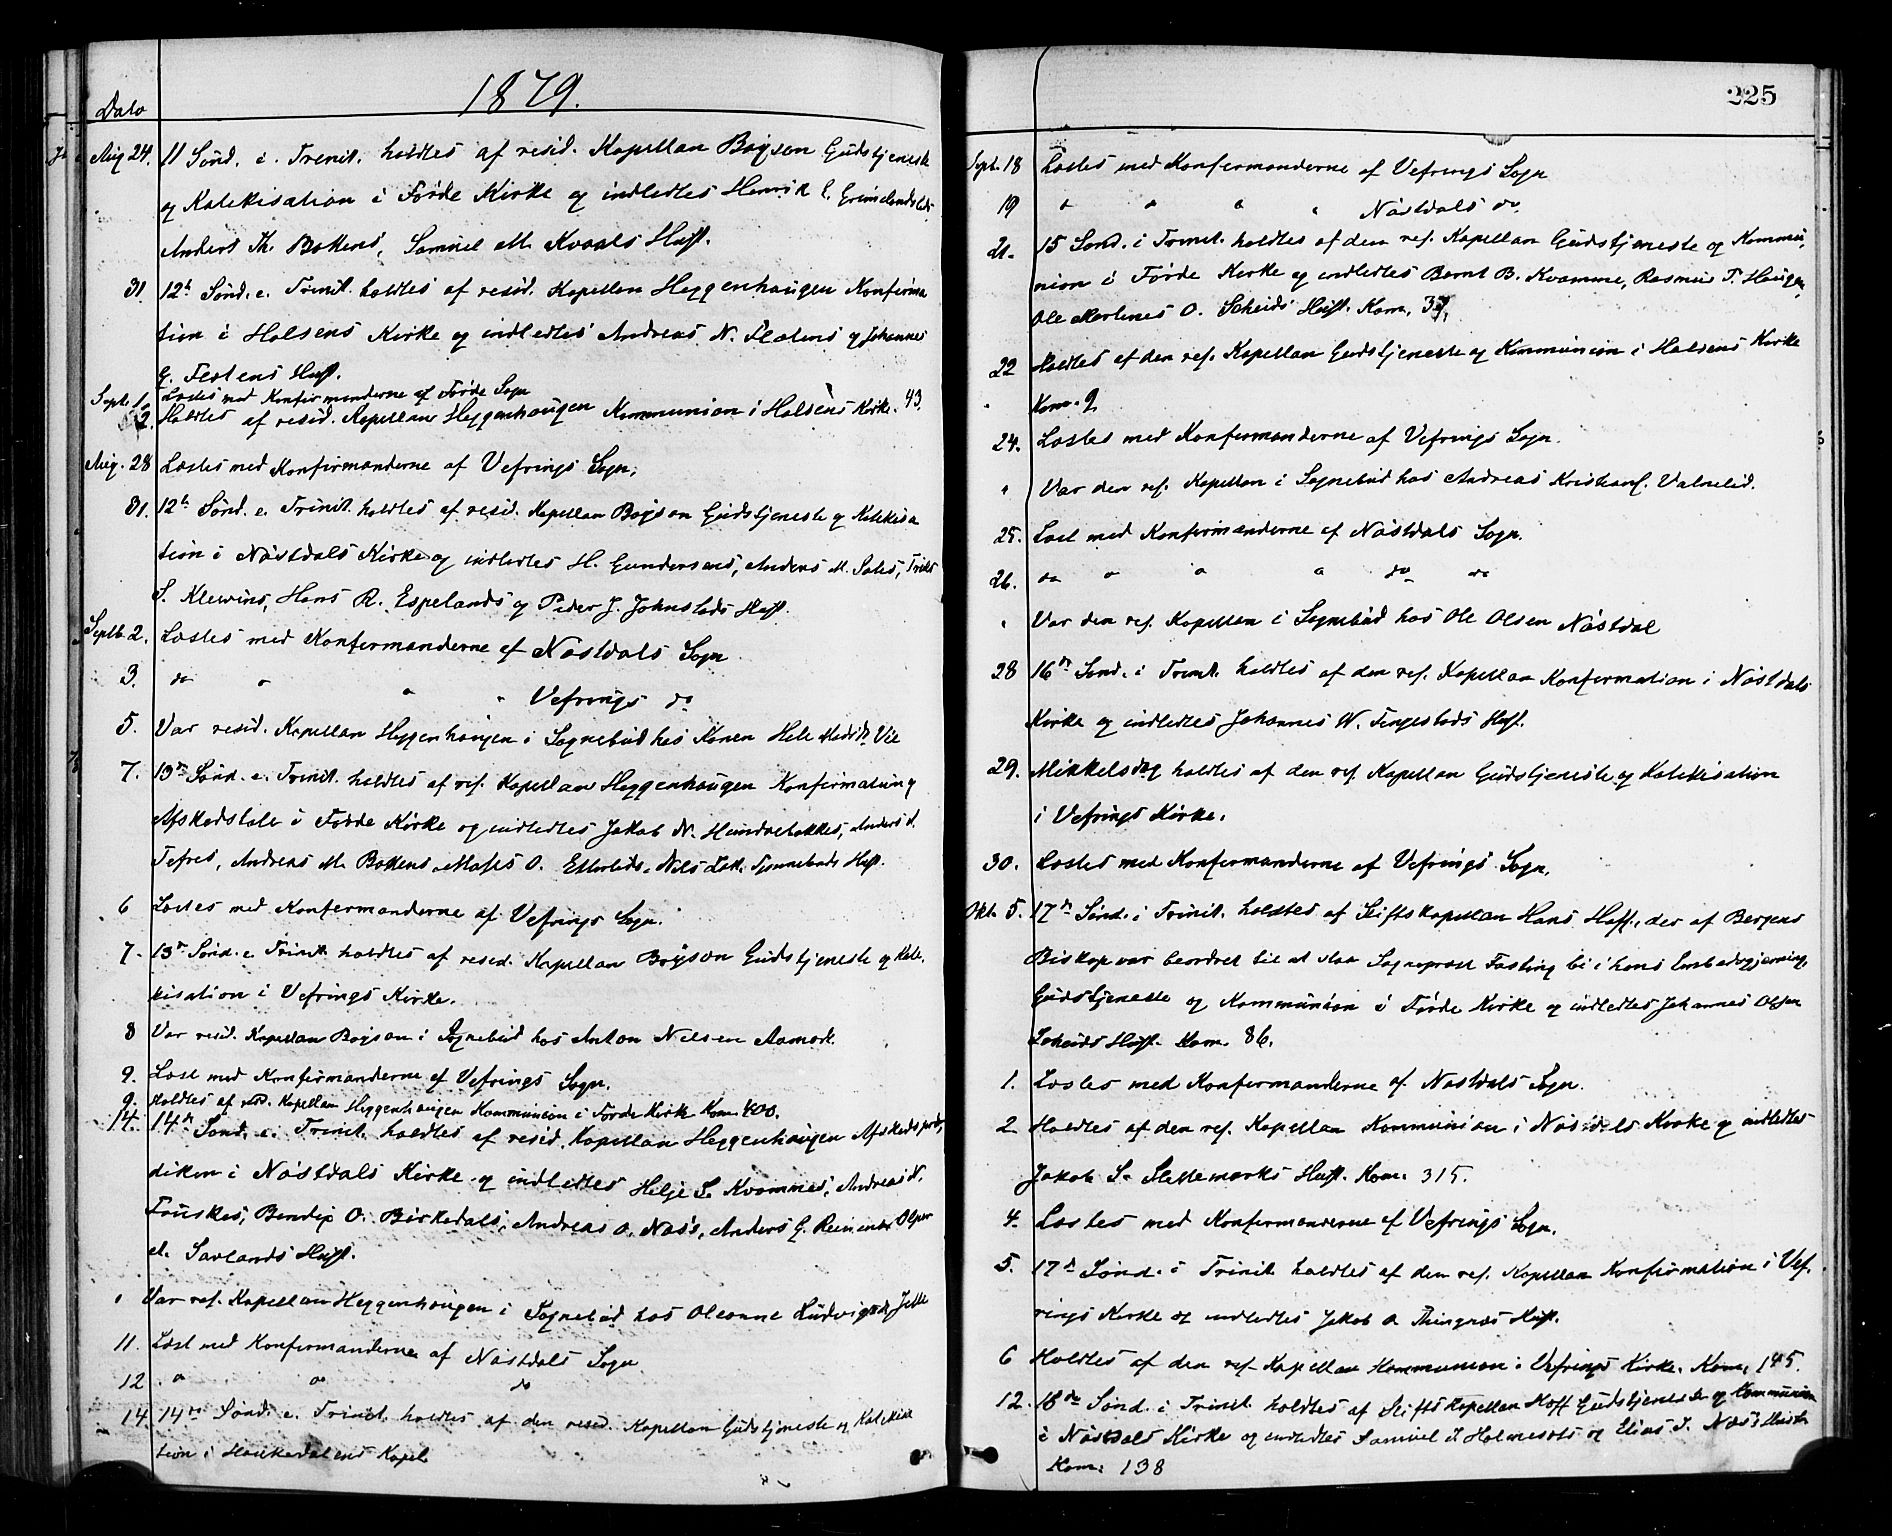 1879.
Dato
Aug 24. 11 Sönd. e. Trinit. holdtes af resid. Kapellan Böyson Gudstjeneste
og Katekisation i Förde Kirke og indledtes Henrik
Anders Th. Bakkens, Samuel M. Kvaals Hust.
31. 12te Sönd. e. Trinit. holdtes af resid. Kapellan Heggenhaugen Konfirma
tion i Holsens Kirke og indledtes Andreas N. Flatens og Johannes
G. Festens Hust.
Sept. 1. Læstes med Konfirmanderne af Förde Sogn
2. Holdtes af resid. Kapellan Heggenhaugen Kommunion i Holsens Kirke. 43.
Aug. 28 Læstes med Konfirmanderne af Vefrings Sogn.
31. 12te Sönd. e. Trinit. holdtes af resid. Kapellan Böyson Gudstjeneste og Katekisa
tion i Nöstdals Kirke og indledtes H. Gundersens, Anders M. Solес,
S. Klewins, Hans R. Espelands og Peder J. Johnstads Hust.
Septb. 2. Læstes med Konfirmanderne af Nöstdals Sogn
3. do " " " Vefrings do
5. Var resid. Kapellan Heggenhaugen i Sognebud hos Konen
7. 13de Sönd. e. Trinit. holdtes af res. Kapellan Heggenhaugen Konfirmation og
Afskedstale i Förde Kirke og indledtes Jakob N. Hundvebakkes, Anders
Tefres, Andreas M. Bakkens, Moses O. Nils
6 Læstes med Konfirmanderne af Vefrings Sogn.
7. 13de Sönd. e. Trinit. holdtes af resid. Kapellan Böyson Gudstjeneste og Kate
kisation i Vefrings Kirke.
8 Var resid. Kapellan Böyson i Sognebud hos Anton Nilsen Aamodt.
9. Læst med Konfirmanderne af Vefrings Sogn.
9. Holdtes af resid. Kapellan Heggenhaugen Kommunion i Förde Kirke Kom. 400.
14. 14de Sönd. e. Trinit. holdtes af resid. Kapellan Heggenhaugen Afskedspræ
diken i Nöstdals Kirke og indledtes Helje S. Kvammes, Andreas N.
Fauskes, Bendix O. Birkedals, Andreas O. Næs's, Anders G.
Savlands Hust.
" Var res. Kapellan Heggenhaugen i Sognebud hos Oleanne Ludvigsdt.
11. Læst med Konfirmanderne af Nöstdals Sogn
12. " " do
14. 14de Sönd. e. Trinit. holdtes af den resid. Kapellan Gudstjeneste og Katekisa
tion i Haukedalens Kapel
225
Sept. 18 Læstes med Konfirmanderne af Vefrings Sogn
19 " " " " Nöstdals do.
21. 15 Sönd. i Trinit. holdtes af den res. Kapellan Gudstjeneste og Kommu
nion i Förde Kirke og indledtes Bernt B. Kvamme, Rasmus T. Haugen,
Ole Martines O. Scheids Hust. Kom. 37.
22 Holdtes af den res. Kapellan Gudstjeneste og Kommunion i Holsens Kirke
Kom. 9
24. Læstes med Konfirmanderne af Vefrings Sogn.
" Var den res. Kapellan i Sognebud hos Andreas Kristians. Valvelid.
25. Læst med Konfirmanderne af Nöstdals Sogn.
26. do " " " do do
" Var den res. Kapellan i Sognebud hos Ole Olsen Nöstdal
28 16de Sönd. i Trinit. holdtes af den res. Kapellan Konfirmation i Nöstdals
Kirke og indledtes Johannes W. Tingestads Hust.
29. Mikkelsdag holdtes af den res. Kapellan Gudstjeneste og Katekisation
i Vefrings Kirke.
30. Læstes med Konfirmanderne af Vefrings Sogn.
Okt. 5. 17de Sönd. i Trinit. holdtes af Stiftskapellan Hans Hoff, der af Bergens
Biskop var beordret til at staa Sognepræst Fasting bi i hans Embedsgjerning,
Gudstjeneste og Kommunion i Förde Kirke og indledtes Johannes Olsen
Scheids Hust. Kom. 86.
1. Læstes med Konfirmanderne af Nöstdals Sogn.
2 Holdtes af den res. Kapellan Kommunion i Nöstdals Kirke og indledtes
Jakob S. Slettemarks Hust. Kom. 315.
4. Læstes med Konfirmanderne af Vefrings Sogn.
5. 17de Sönd. i Trinit. holdtes af den res. Kapellan Konfirmation i Vef
rings Kirke og indledtes Jakob A. Thingnæs Hust.
6 Holdtes af den res. Kapellan Kommunion i Vefrings Kirke. Kom. 145.
12. 18de Sönd. i Trinit. holdtes af Stiftskapellan Hoff Gudstjeneste og Kommunion
i Nöstdals Kirke og indledtes Samuel og Elias J. Næs's Hustr.
Kom. 138